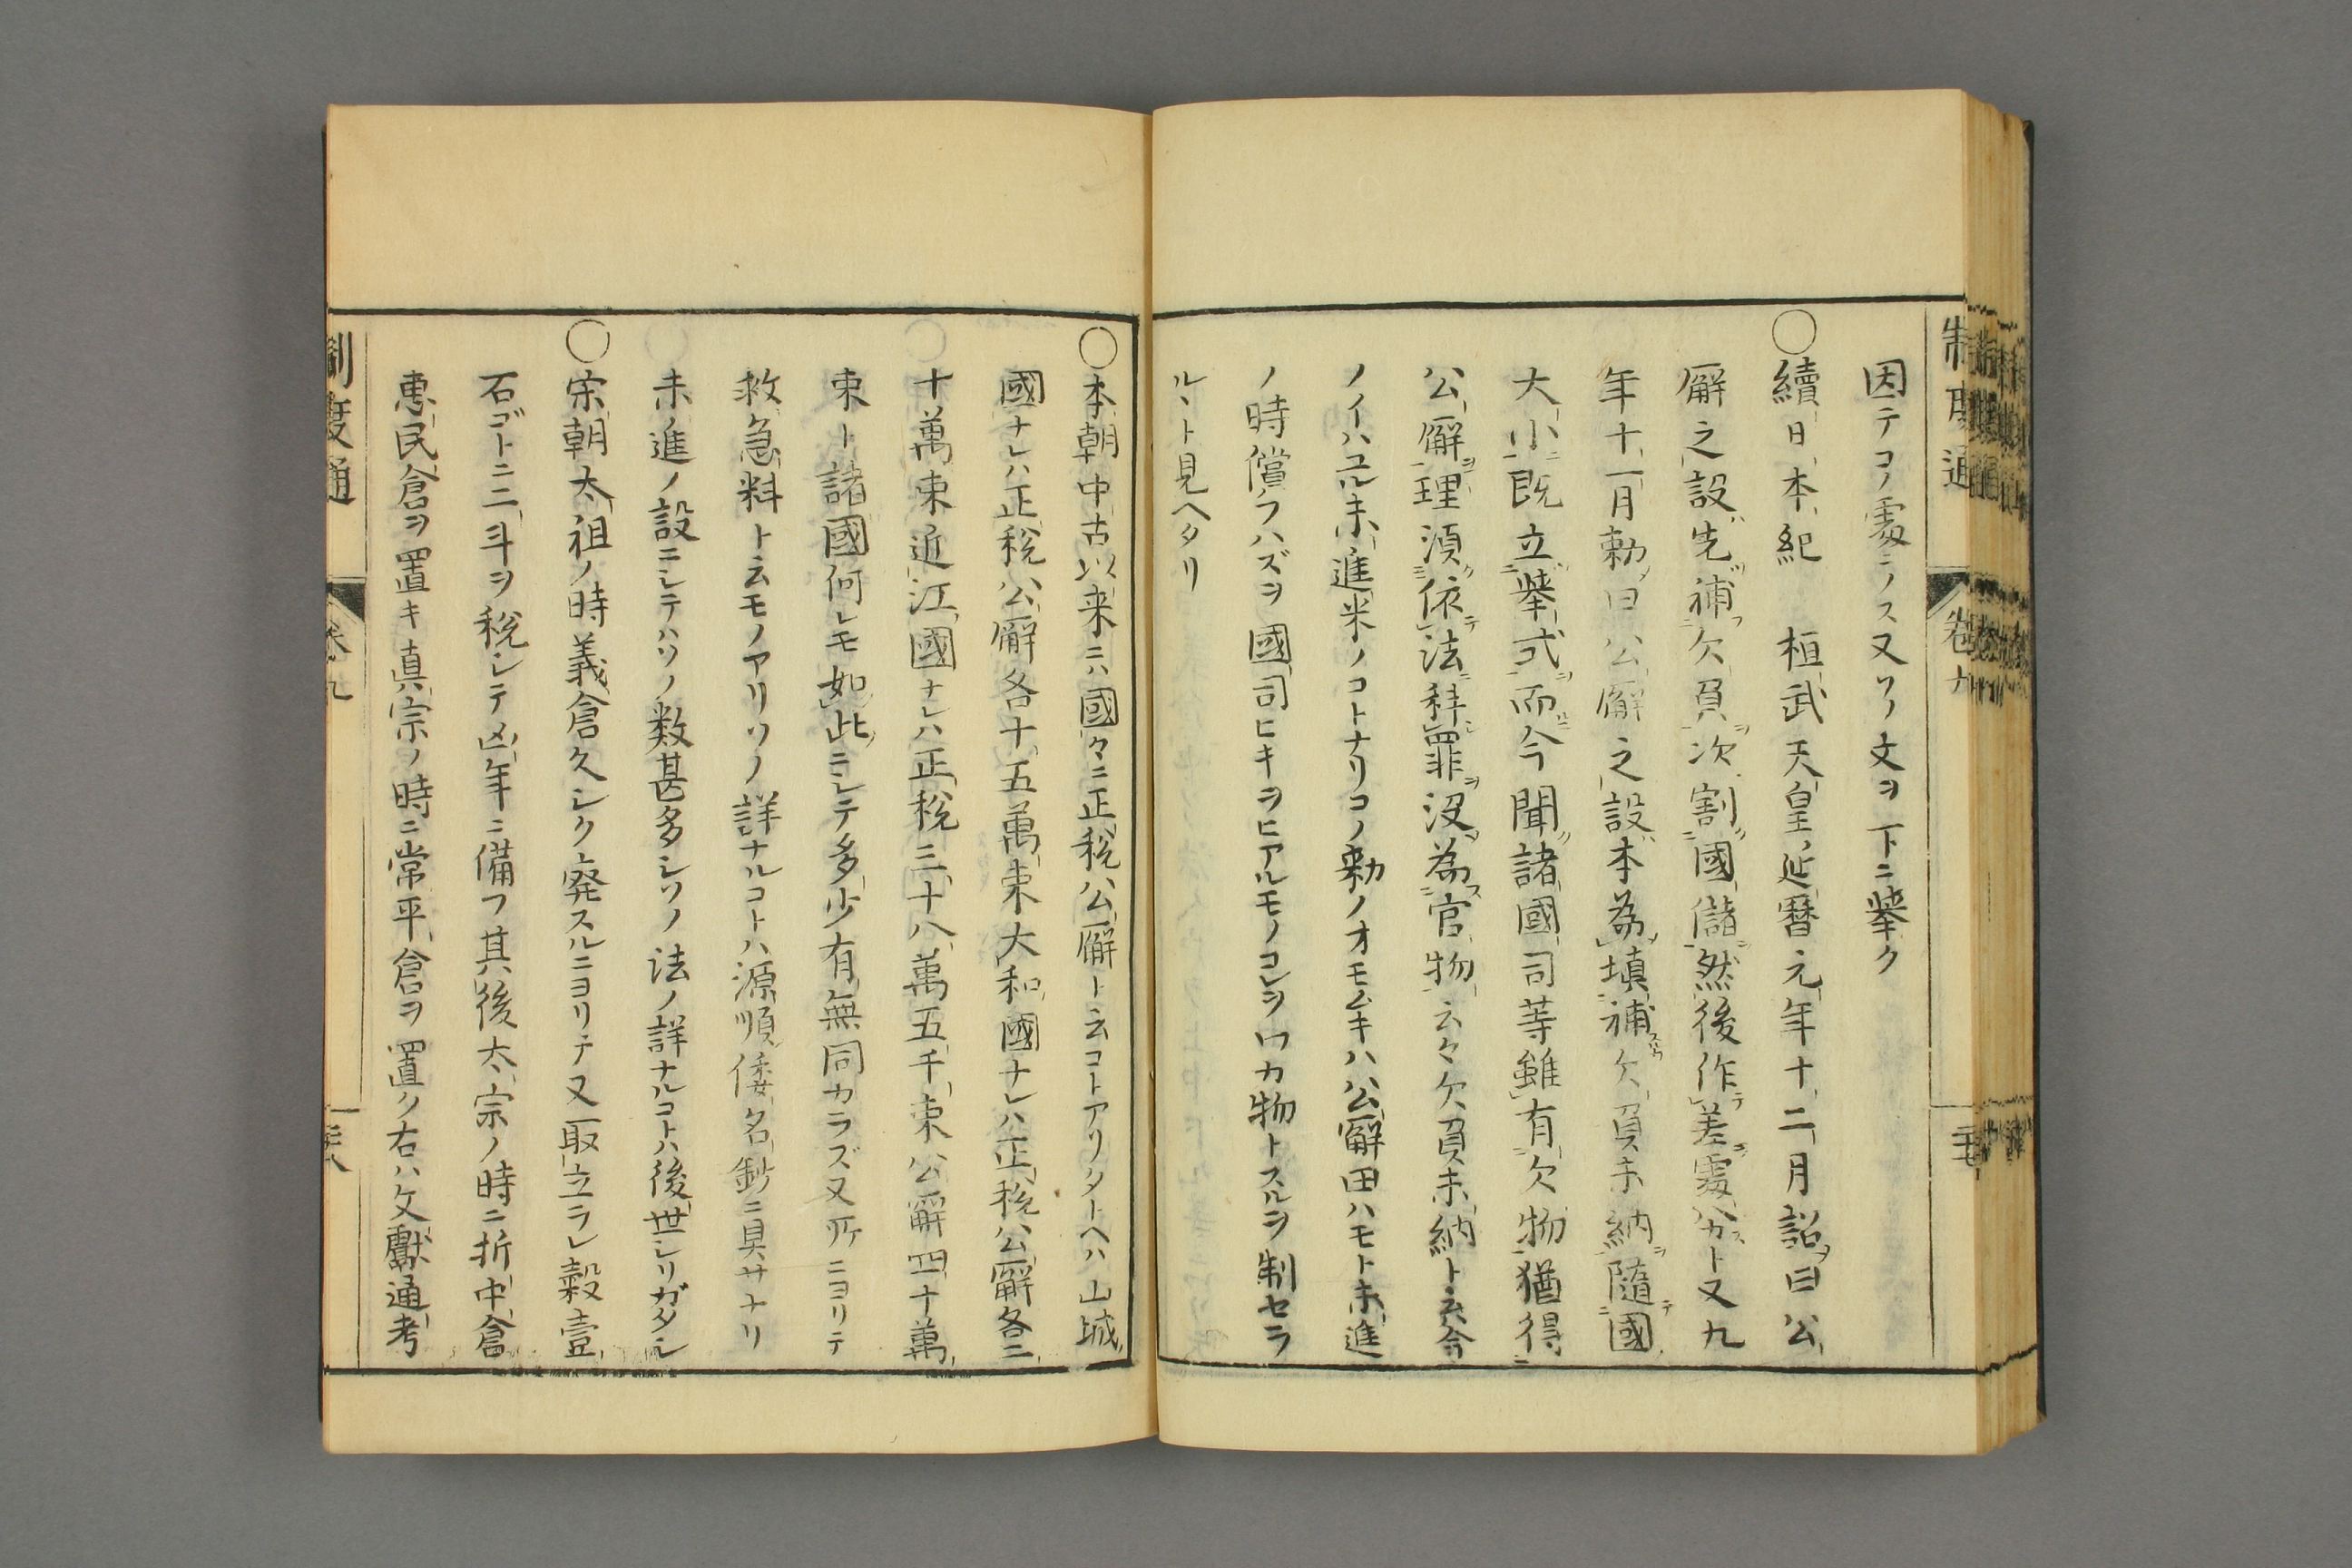 因テコノ處ニノス又ソノ文ヲ下ニ擧ク
○續日本紀　桓武天皇延暦元年十二月詔曰公
廨之設先補欠負次割國儲然後作差處分ト又九
年十一月勅曰公廨之設本為填補欠負未納隨國
大小既立擧式而今聞諸國司等雖有欠物猶得
公廨理須依法科罪沒為官物云々欠負未納ト云今
ノイハユル未進米ノコトナリコノ勅ノオモムキハ公廨田ハモト未進
ノ時償フハズヲ國司ヒキヲヒアルモノコレヲワカ物トスルヲ制セラ
ルヽト見ヘタリ
○本朝中古以来ニハ國々ニ正税公廨ト云コトアリタトヘハ山城
國ナレハ正税公廨各十五萬束大和國ナレハ正税公廨各二
十萬束近江國ナレハ正税三十八萬五千束公廨四十萬
束ト諸國何レモ如此ニシテ多少有無同カラズ又所ニヨリテ
救急料ト云モノアリソノ詳ナルコトハ源順倭名鈔ニ具サナリ
未進ノ設ニシテハソノ数甚多シソノ法ノ詳ナルコトハ後世シリガタシ
○宋朝太祖ノ時義倉久シク廃スルニヨリテ又取立ラレ穀壹
石ゴトニ二斗ヲ税シテ凶年ニ備フ其後太宗ノ時ニ折中倉
惠民倉ヲ置キ真宗ノ時ニ常平倉ヲ置ク右ハ文獻通考
制度通
卷九